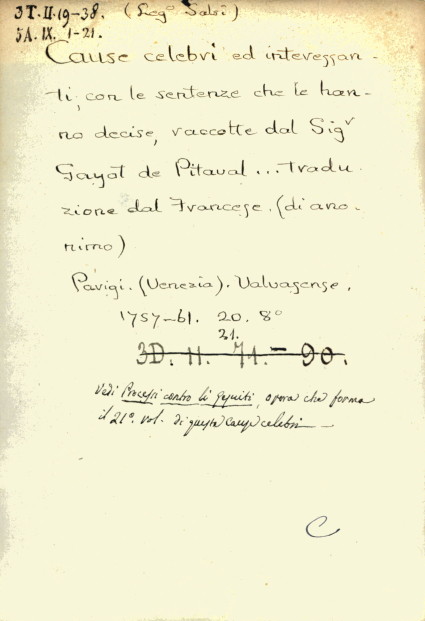 3T. II. 19-38. (Leg.º Salsi)
5A. IX. 1-21.
Cause celebri ed interessan-
ti, con le sentenze che le han-
no decise, raccotte dal Sigr
Gayot de Pitaval ... Tradu
zione dal Francese. (di ano-
nimo)
Parigi. (Venezia). Valvasense,
1757-61. 20. 8º
21.
3D. 11. 71.-90.
Vedi Processi contro li Gesuiti, opera che forma
il 21º. vol. di queste Cause celebri
C